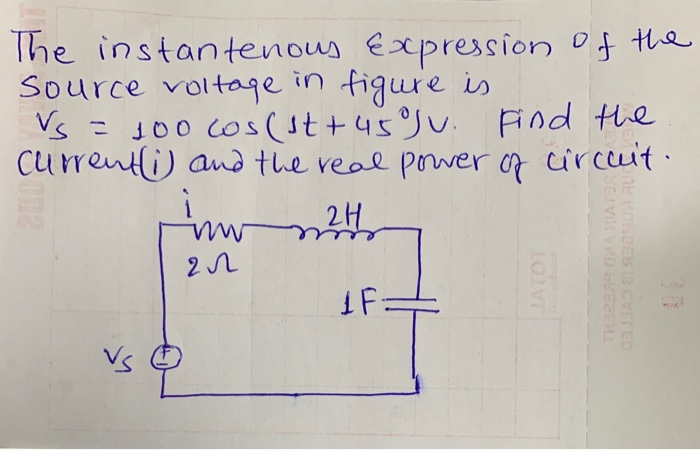 The instantenous Expression of the
source voltage in figure is
Vs = 100 cos(1t+45°)V. Find the
current(i) and the real power of circuit.
i
2H
2Ω
1F
Vs
TOTAL